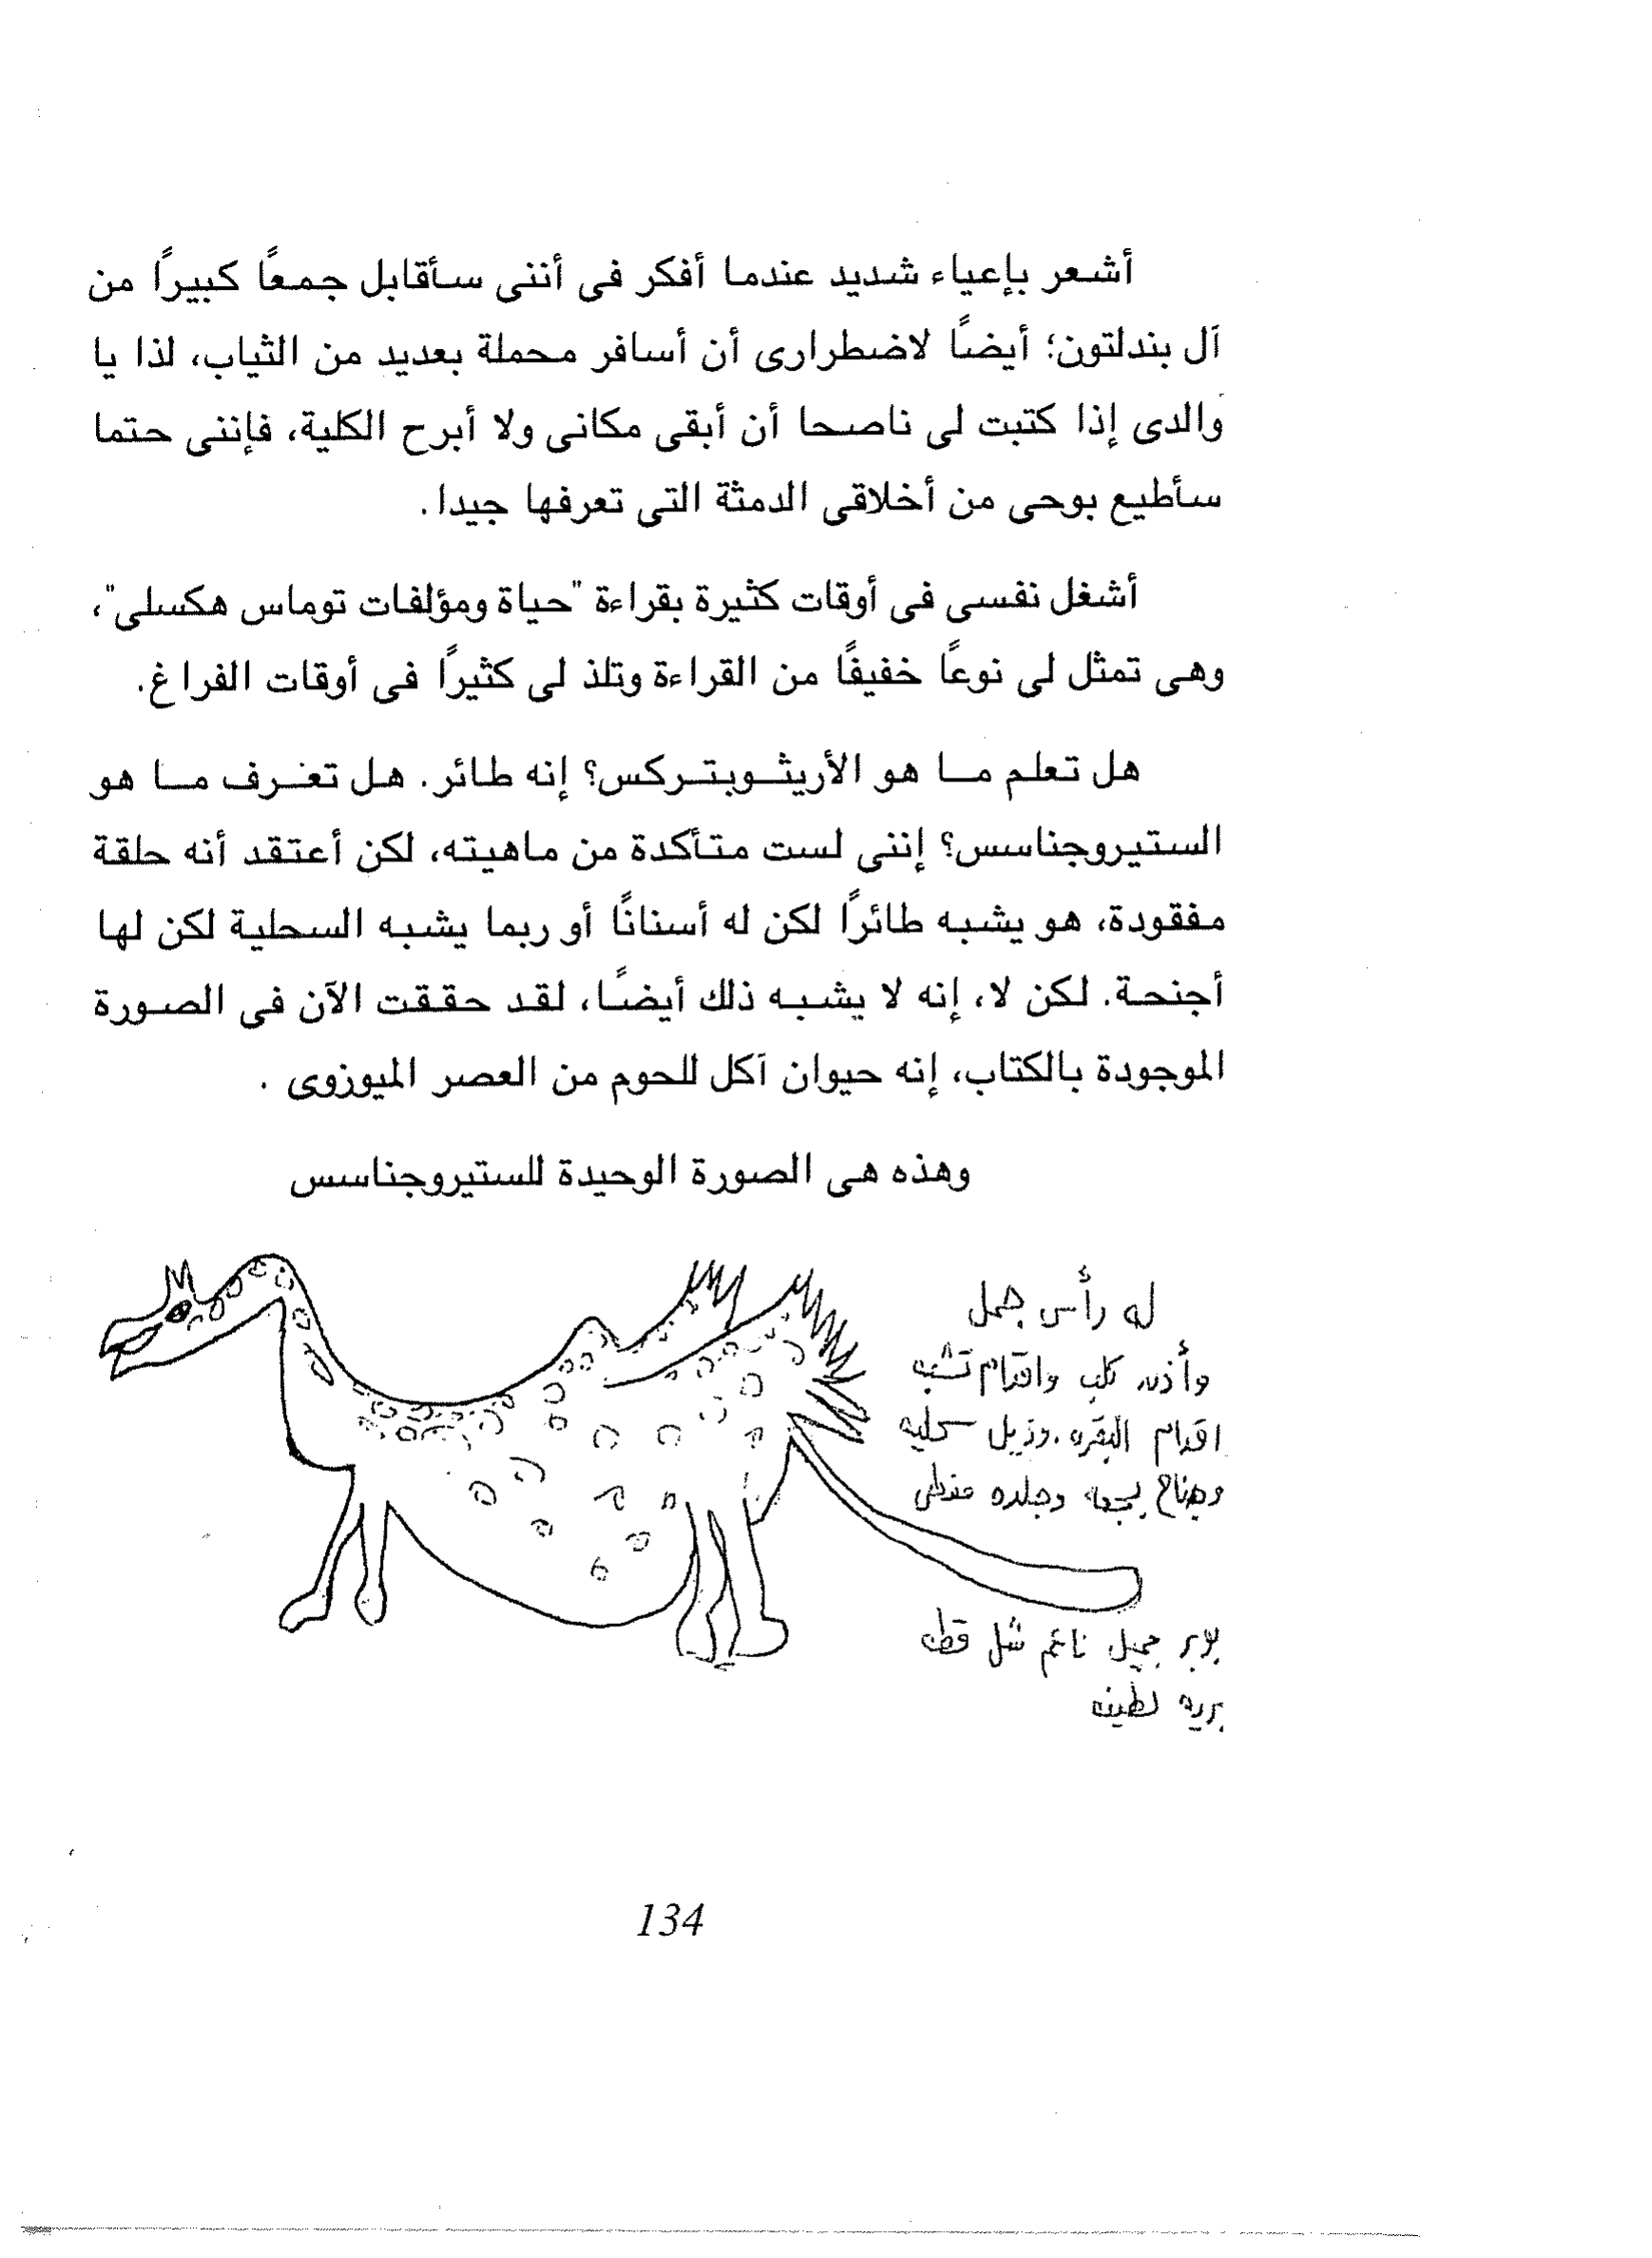 أشعر بإعياء شديد عندما أفكر فى أننى سأقابل جمعًا كبيرًا من
آل بندلتون؛ أيضًا لاضطرارى أن أسافر محملة بعديد من الثياب، لذا يا
والدى إذا كتبت لى ناصحا أن أبقى مكانى ولا أبرح الكلية، فإننى حتما
سأطيع بوحى من أخلاقى الدمثة التى تعرفها جيدا.
أشغل نفسى فى أوقات كثيرة بقراءة "حياة ومؤلفات توماس هكسلى"،
وهى تمثل لى نوعًا خفيفًا من القراءة وتلذ لى كثيرًا فى أوقات الفراغ.
هل تعلم ما هو الأريثوبتركس؟ إنه طائر. هل تعرف ما هو
الستيروجناسس؟ إننى لست متأكدة من ماهيته، لكن أعتقد أنه حلقة
مفقودة، هو يشبه طائرًا لكن له أسنانًا أو ربما يشبه السحلية لكن لها
أجنحة. لكن لا، إنه لا يشبه ذلك أيضًا، لقد حققت الآن فى الصورة
الموجودة بالكتاب، إنه حيوان آكل للحوم من العصر الميوزوى .
وهذه هى الصورة الوحيدة للستيروجناسس
له رأس جمل
وأذن كلب واقدام تشبه
اقدام البقره. وذيل سحليه
وجناح بجعه وجلده مغطى
بوبر جميل ناعم مثل قطه
بريه لطيفه
134